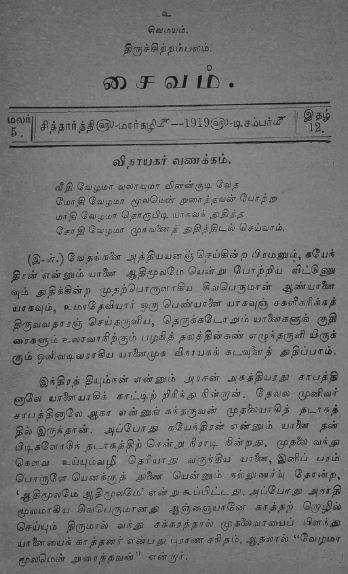 உ
சிவமயம்.
திருச்சிற்றம்பலம்.
சைவம்.
மலர்
5.
சித்தார்த்தி௵-மார்கழி௴—1919௵-டிசம்பர்௴
இதழ்
12.
விநாயகர் வணக்கம்.
வீதி வேழமா வுலாவுமா வீளன்குடி வேத
மோதி வேழமா மூலமென் றுரைத்தவன் போற்று
மாதி வேழமா தொருபிடி யாகவக் குதித்த
சோதி வேழமா முகவனைத் துதித்திடல் செய்வாம்.
(இ-ள்.) வேதங்களை அத்தியயனஞ் செய்கின்ற பிரமனும், கயேந்
திரன் என்னும் யானை ஆதிமூலமே யென்று போற்றிய விட்டுணு
வும் துதிக்கின்ற முதற்பொருளாகிய சிவபெருமான் ஆண்யானை
யாகவும், உமாதேவியார் ஒரு பெண்யானை யாகவுஞ் சகளீகரிக்கத்
திருவவதாரஞ் செய்தருளிய, தெருக்கடோறும் யானைகளும் குதி
ரைகளும் உலாவாநிற்கும் பழகித் தலத்தின்கண் எழுந்தருளி யிருக்
கும் ஒளிவடிவராகிய யானைமுக விநாயகக் கடவுளைத் துதிப்பாம்.
இந்திரத் தியும்நன் என்னும் அரசன் அகத்தியரது சாபத்தி
னாலே யானையாகிக் காட்டிற் றிரிந்து நின்றான். தேவல முனிவர்
சாபத்தினாலே ஆகா என்னுங் கந்தருவன் முதலையாகித் தடாகத்
தில் இருந்தான். அப்போது கயேந்திரன் என்னும் யானை தன்
பிடிகளோடுந் தடாகத்திற் சென்று நீராடி நின்றது, முதலை வந்து
கௌவ உய்யும்வழி தெரியாது வருந்திய யானை, இனிப் பரம்
பொருளே யெனக்குத் துணை யென்னும் நல்லுணர்வு தோன்ற,
'ஆதிமூலமே ஆதிமூலமே' என்று கூப்பிட்டது. அப்போது அநாதி
மூலமாகிய சிவபெருமானது ஆஞ்ஞையானே காத்தற் றொழில்
செய்யும் திருமால் வந்து சக்கரத்தால் முதலைவாயைப் பிளந்து
யானையைக் காத்தனர் என்பது புராண சரிதம். ஆதலால் "வேழமா
மூலமென் றுரைத்தவன்" என்றார்.